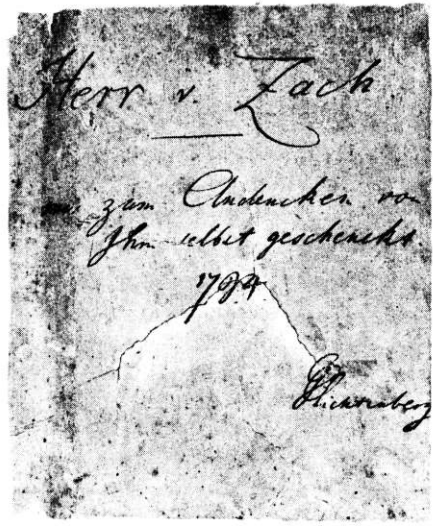 Herr v. Zach
zum Andencken von
Ihm selbst geschenckt.
1794
GLichtenberg